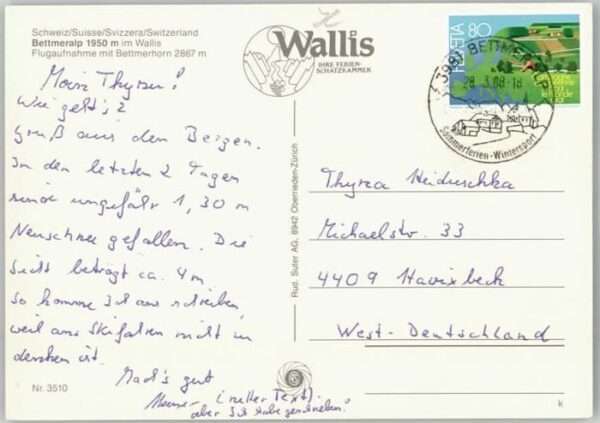 Schweiz/Suisse/Svizzera/Switzerland
Bettmeralp 1950 m im Wallis
Flugaufnahme mit Bettmerhorn 2867 m
Wallis
IHRE FERIEN-
SCHATZKAMMER
HELVETIA 80
3992 BETTMERALP
28.3.88-18
Sommerferien-Wintersport
Moin Thyra!
Wie geht's?
Gruß aus den Bergen.
In den letzten 2 Tagen
sind ungefähr 1,30 m
Neuschnee gefallen. Die
beträgt ca. 4m
so komme ich zum schreiben,
weil ans Skifahren nicht zu
denken ist.
Mach's gut
(netter Text).
aber ich habe geschrieben!
Nr. 3510
Rud. Suter AG, 8942 Oberrieden-Zürich
Thyra Heiduschka
Michaelstr. 33
4409 Havixbeck
West-Deutschland
k